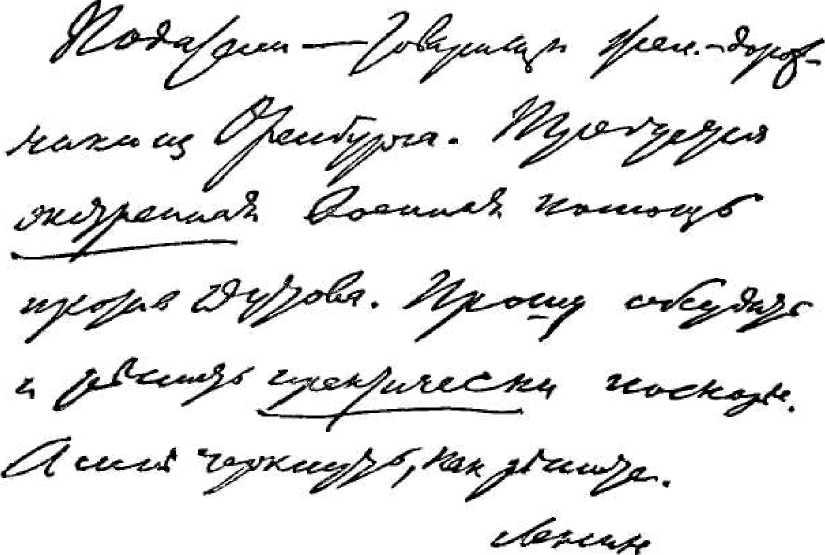 Податели — товарищи жел.-дорож-
ники из Оренбурга. Требуется
экстренная военная помощь
против Дутова. Прошу обсудить
и решить практически поскорее.
А мне черкнуть, как решите.
Ленин